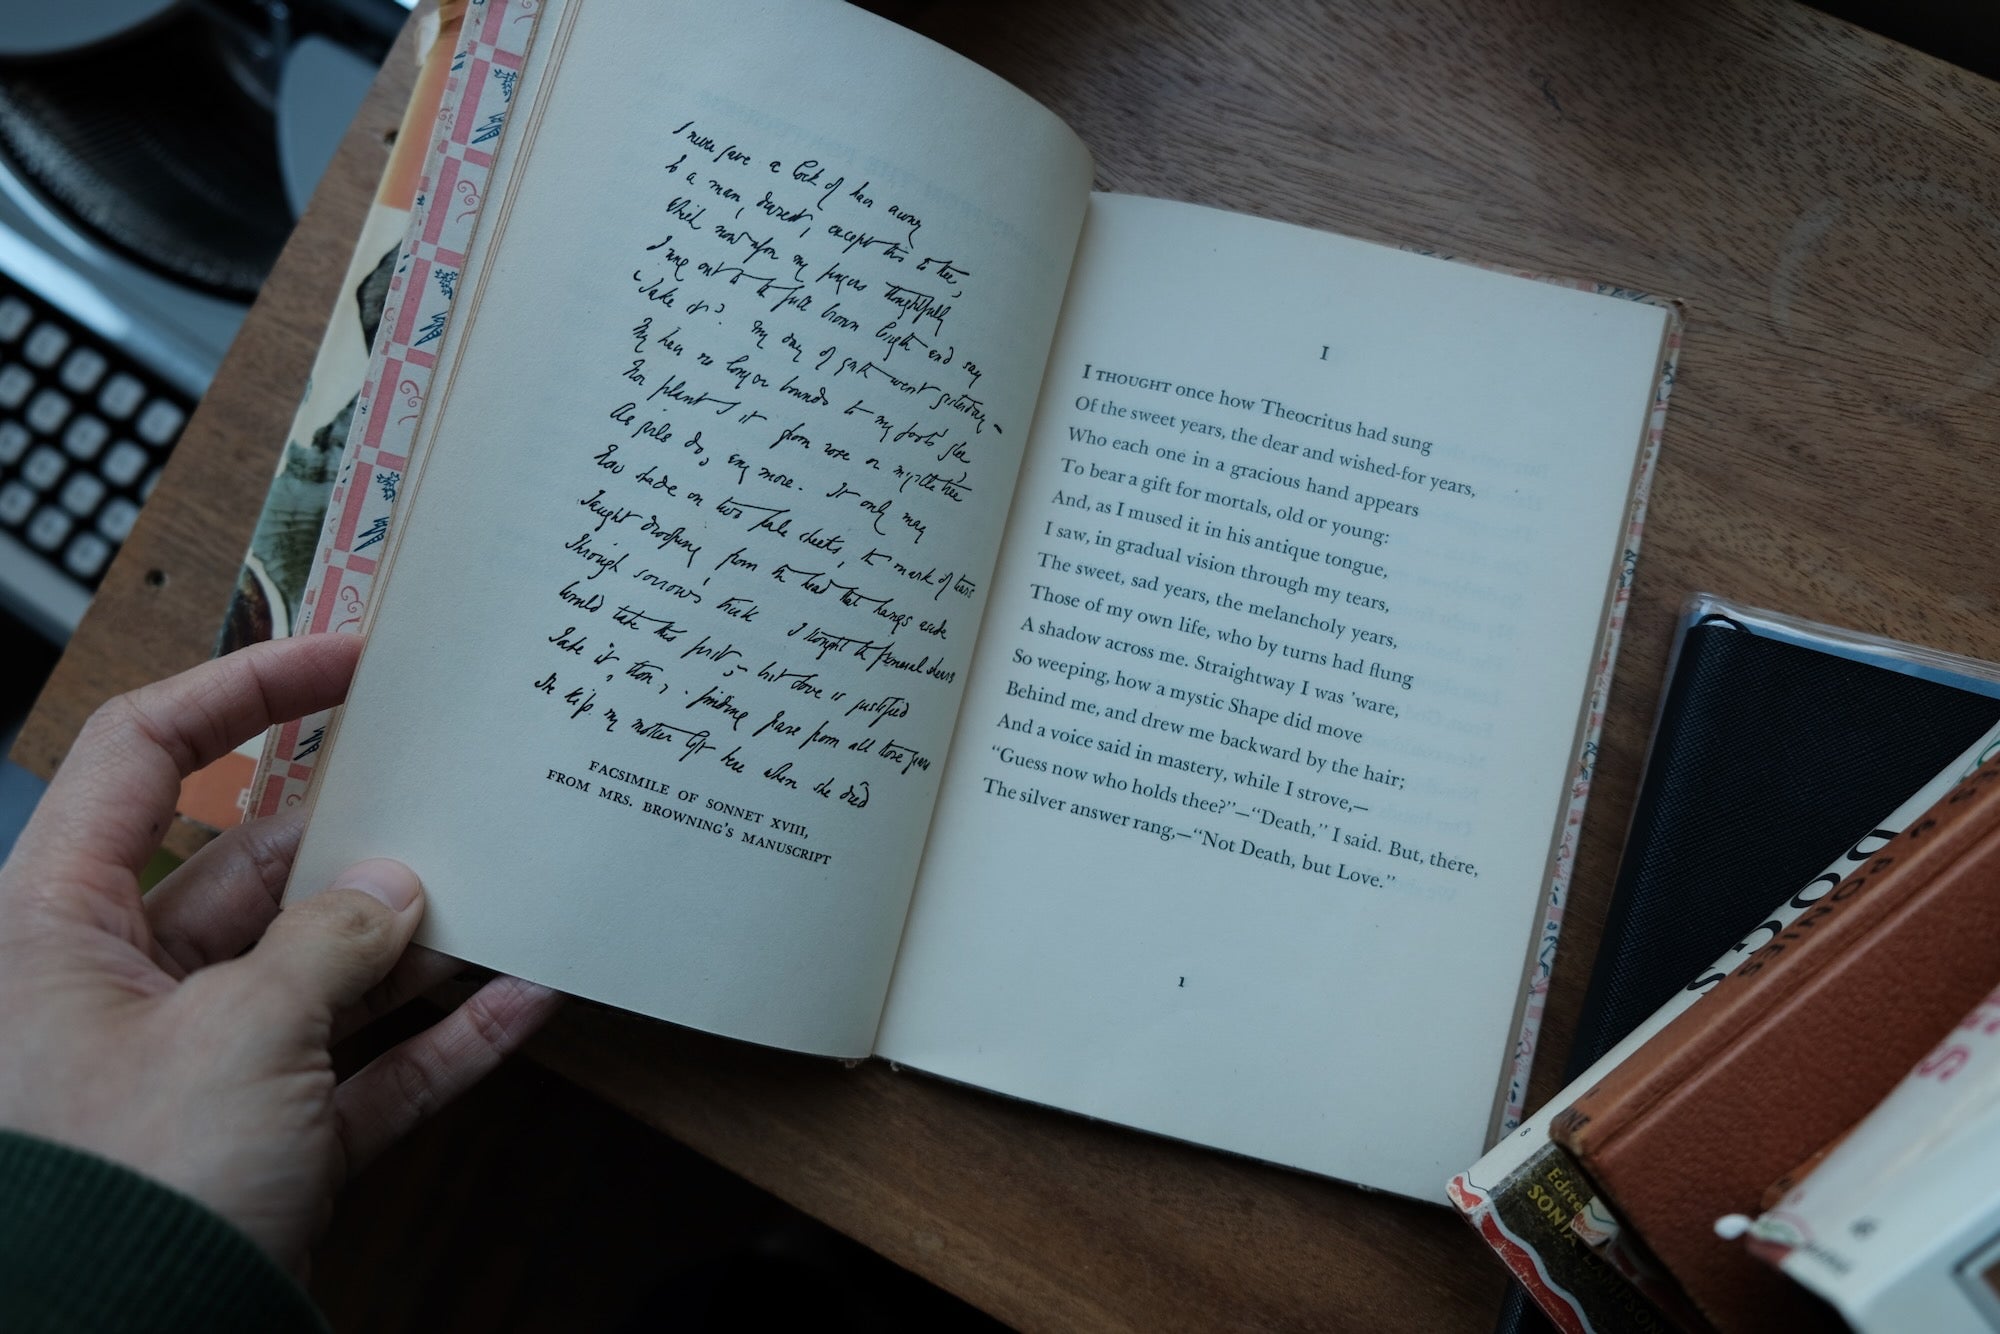 I never gave a lock of hair away
to a man, dearest, except this to thee,
Which now upon my fingers thoughtfully
I ring out to the full brown length and say
‘Take it’. My day of youth went yesterday –
My hair no longer bounds to my foot's glee
Nor plant I it from rose or myrtle tree,
As girls do, any more. It only may
Now shade on two pale cheeks, the mark of tears
Taught drooping from the head that hangs aside
Through sorrow's trick I thought the funeral shears
Would take this first; – but Love is justified
Take it, thou, . finding pure from all those years
The kiss my mother left here when she died
FACSIMILE OF SONNET XVIII,
FROM MRS. BROWNING'S MANUSCRIPT
I
I THOUGHT once how Theocritus had sung
Of the sweet years, the dear and wished-for years,
Who each one in a gracious hand appears
To bear a gift for mortals, old or young:
And, as I mused it in his antique tongue,
I saw, in gradual vision through my tears,
The sweet, sad years, the melancholy years,
Those of my own life, who by turns had flung
A shadow across me. Straightway I was 'ware,
So weeping, how a mystic Shape did move
Behind me, and drew me backward by the hair;
And a voice said in mastery, while I strove,—
“Guess now who holds thee?”—“Death,” I said. But, there,
The silver answer rang,—“Not Death, but Love.”
1
DOGS
PONIES
8
SONIA